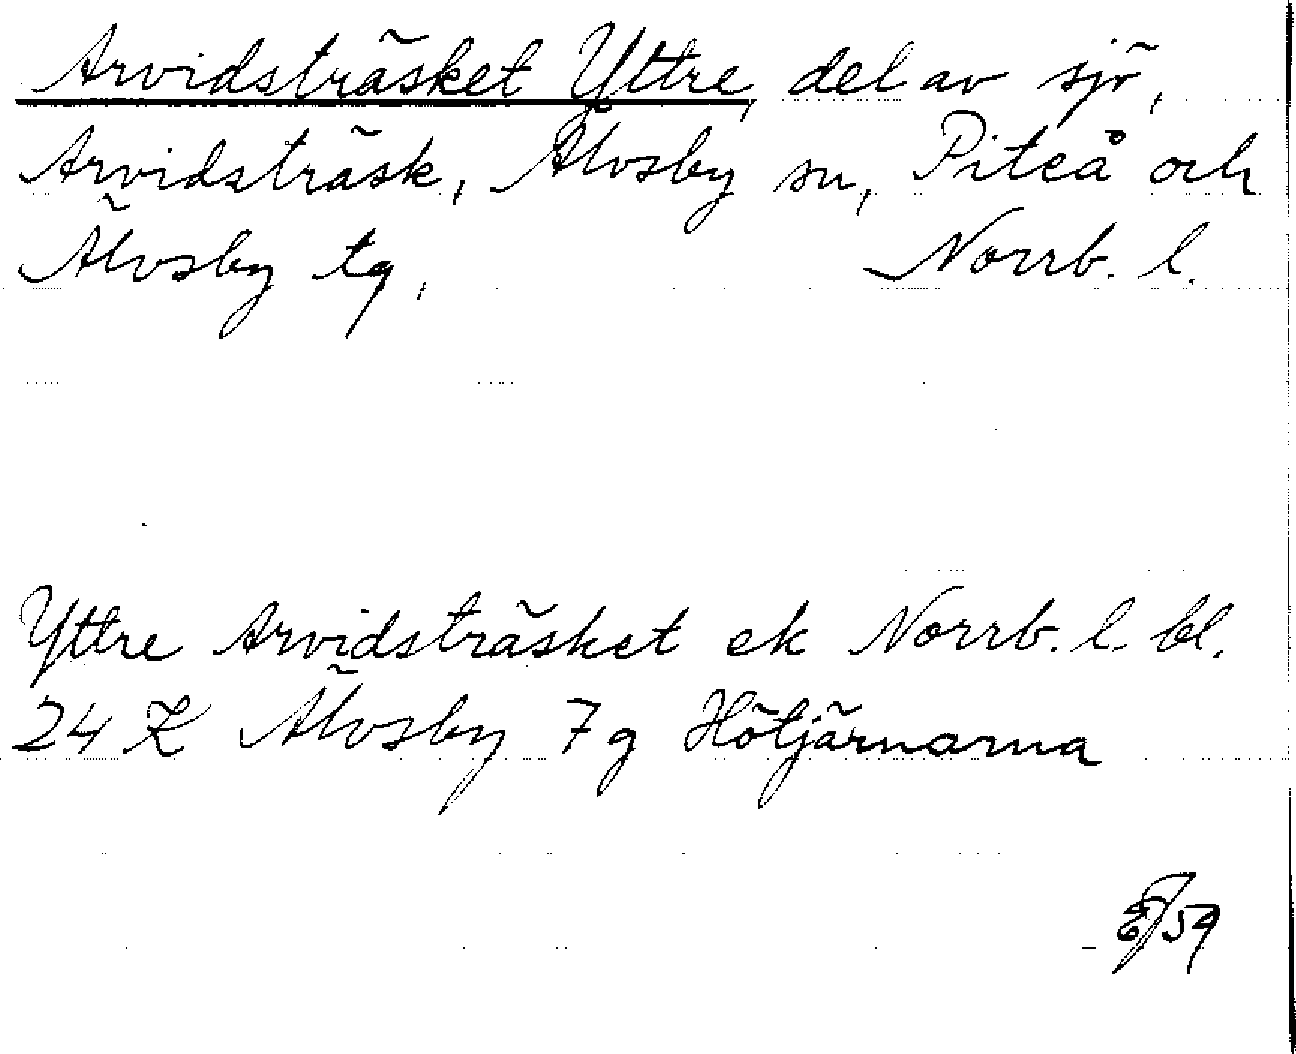 Arvidsträsket Yttre, del av sjö,
Arvidsträsk, Älvsby sn, Piteå och
Älvsby tg, Norrb. l.
Yttre Arvidsträsket ek Norrb. l. bl.
24 K Älvsby 7g Hötjärnarna
/59